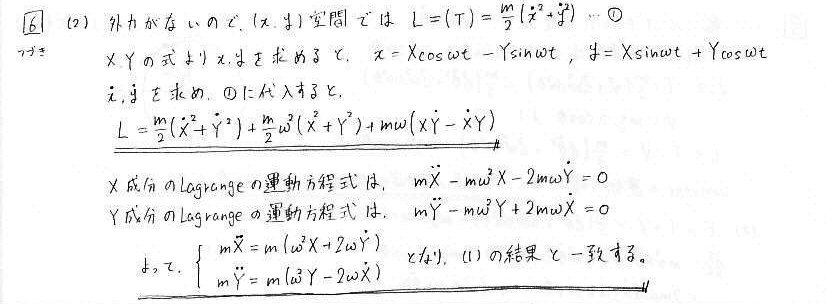 6 (2) 外力がないので、(x,y)空間では L=(T)=m/2(ẋ²+ẏ²) …①
つづき X,Yの式よりx,yを求めると、 x=Xcosωt-Ysinωt, y=Xsinωt+Ycosωt
ẋ,ẏを求め、①に代入すると、
L=m/2(Ẋ²+Ẏ²)+m/2ω²(X²+Y²)+mω(XẎ-ẊY)
X成分のLagrangeの運動方程式は、 mẌ-mω²X-2mωẎ=0
Y成分のLagrangeの運動方程式は、 mŸ-mω²Y+2mωẊ=0
よって、 { mẌ=m(ω²X+2ωẎ)
mŸ=m(ω²Y-2ωẊ) となり、(1)の結果と一致する。